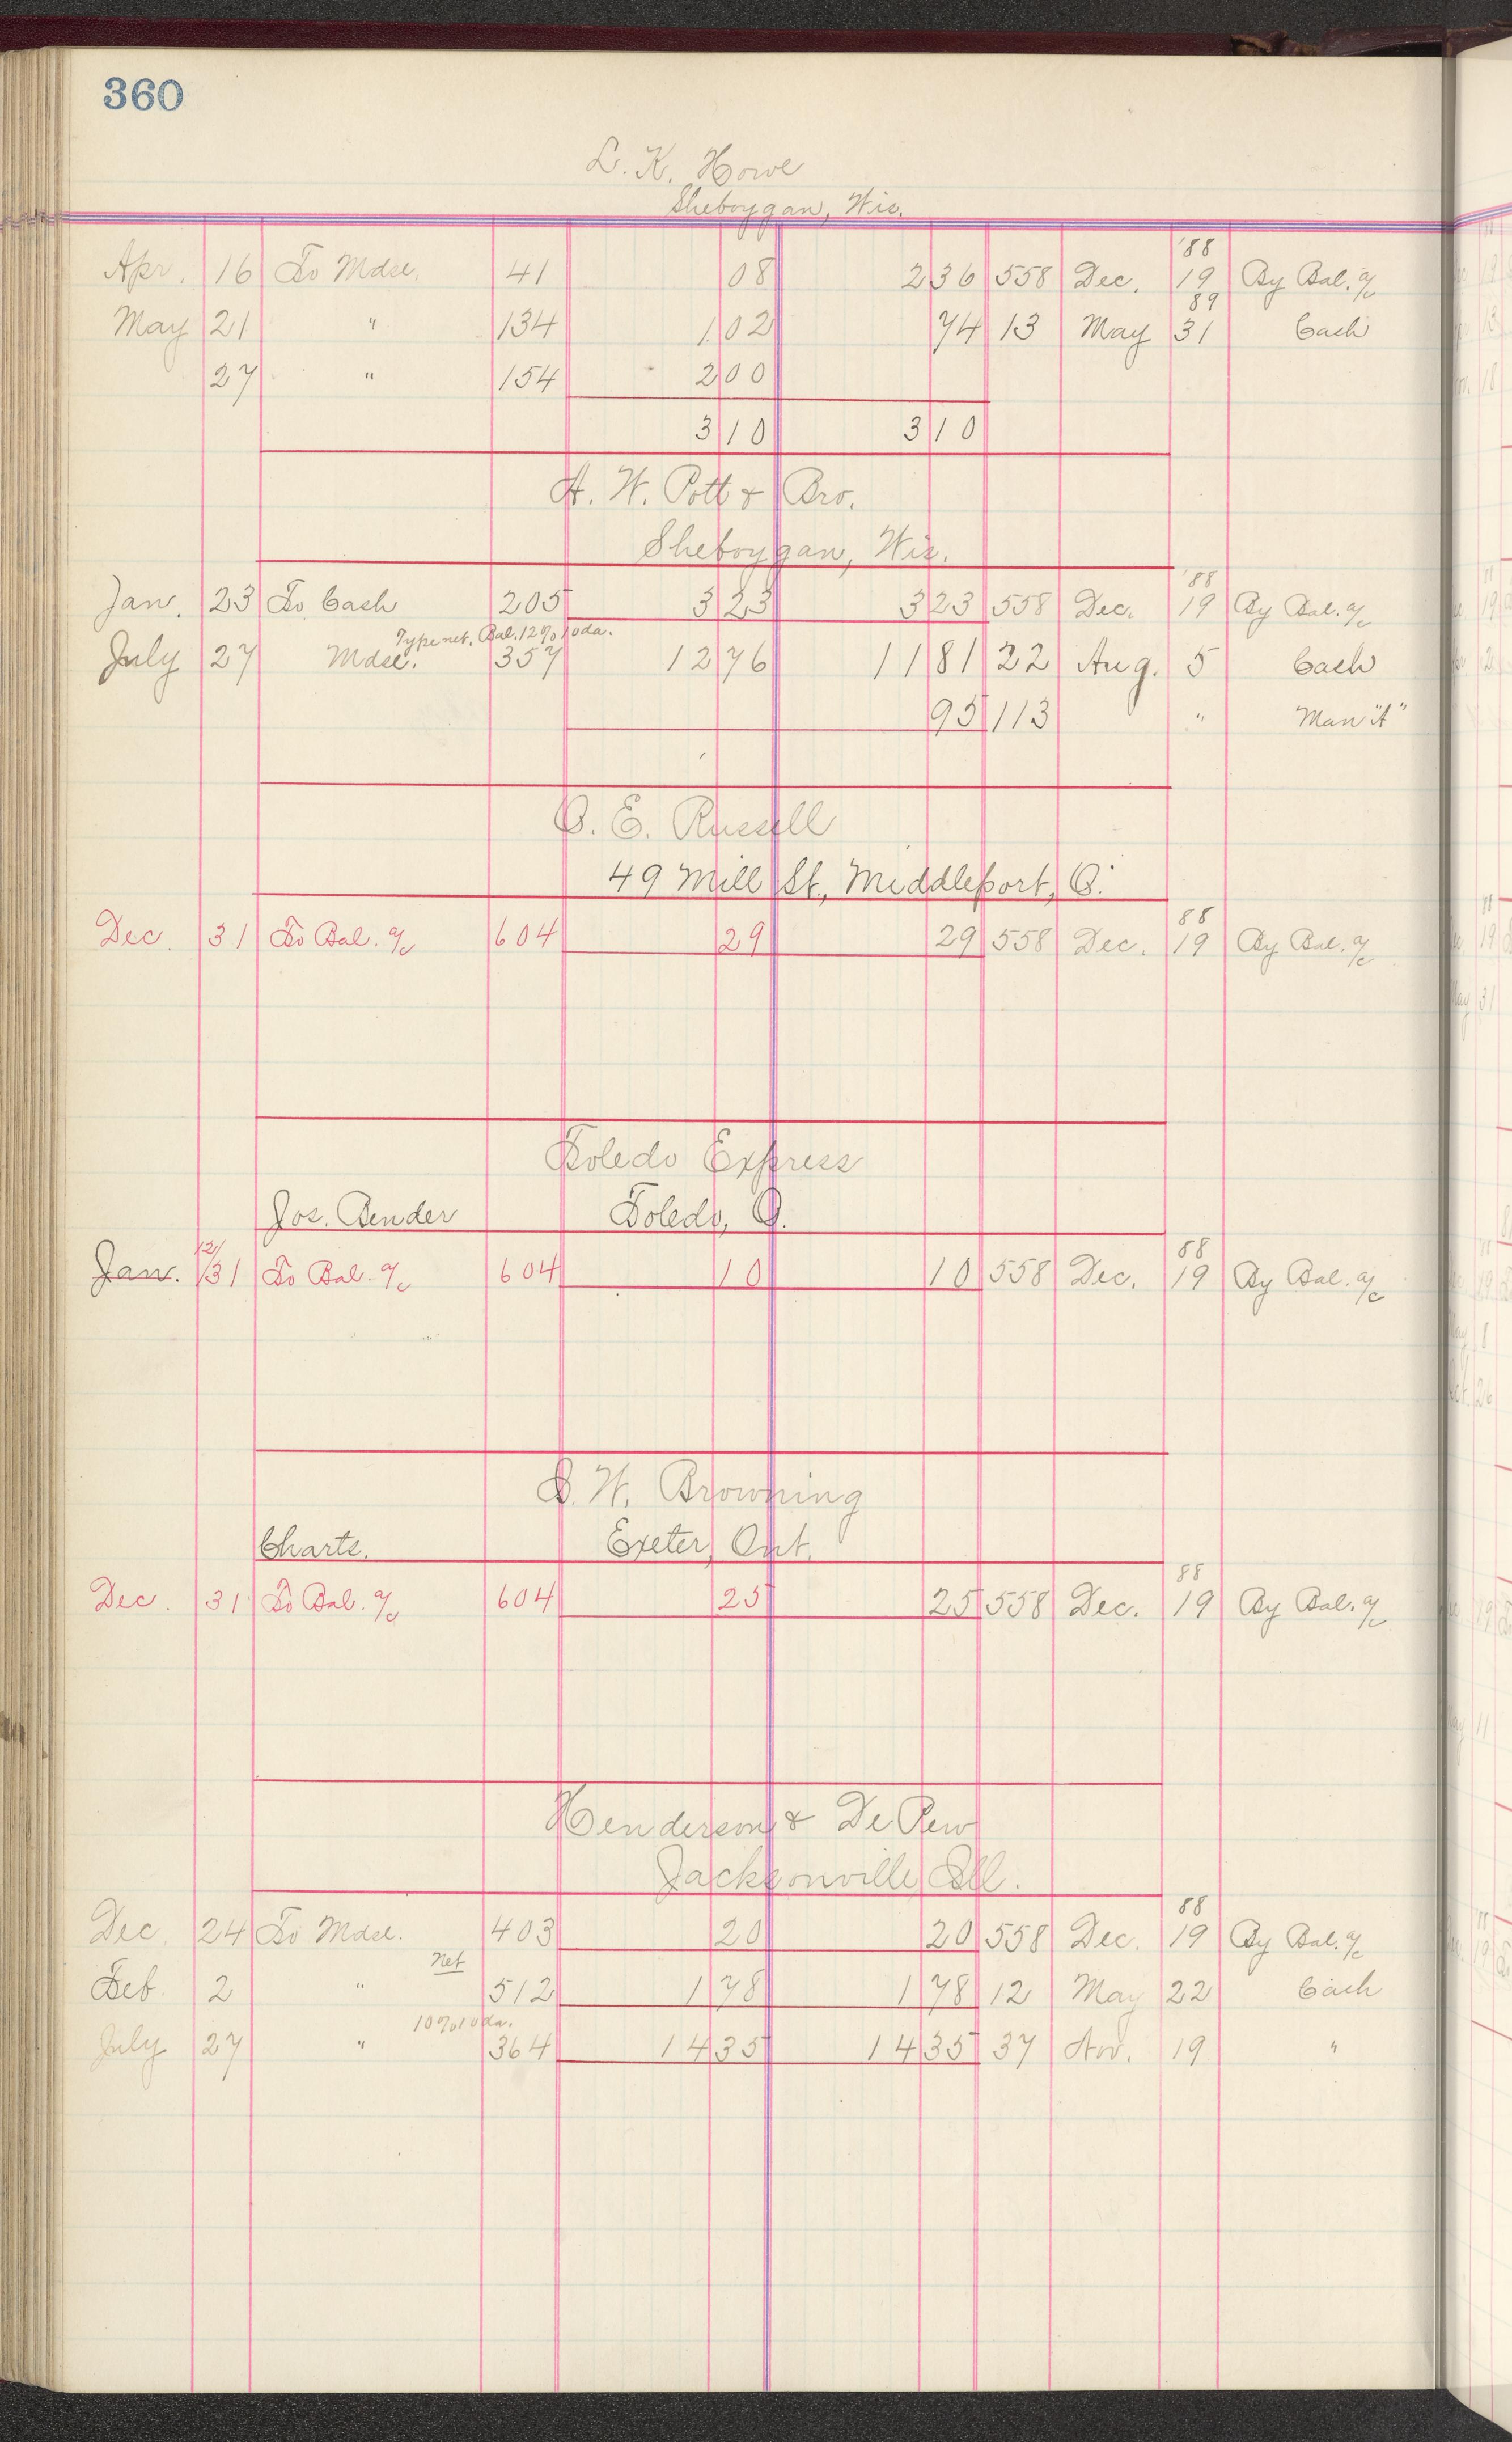 360
L. K. Howe
Sheboygan, Wis.
'88
Apr. 16 To Mdse. 41 08 2 36 558 Dec. 19 By Bal. a/c
89
May 21 " 134 1 02 74 13 May 31 Cash
27 " 154 2 00
3 10 3 10
A. W. Pott & Bro.
Sheboygan, Wis.
'88
Jan. 23 To Cash 205 3 23 3 23 558 Dec. 19 By Bal. a/c
Type net. Bal. 12% 10 da.
July 27 Mdse. 357 12 76 11 81 22 Aug. 5 Cash
95 113 " Man "A"
O. E. Russell
49 Mill St., Middleport, O.
88
Dec. 31 To Bal. a/c 604 29 29 558 Dec. 19 By Bal. a/c
Toledo Express
Jos. Bender Toledo, O.
12/ 88
Jan. 31 To Bal. a/c 604 10 10 558 Dec. 19 By Bal. a/c
W. Browning
Charts. Exeter, Ont.
88
Dec. 31 To Bal. a/c 604 25 25 558 Dec. 19 By Bal. a/c
Henderson & De Pew
Jacksonville Ill.
88
Dec. 24 To Mdse. 403 20 20 558 Dec. 19 By Bal. a/c
Net
Feb. 2 " 512 1 78 1 78 12 May 22 Cash
10% 10 da.
July 27 " 364 14 35 14 35 37 Nov. 19 "